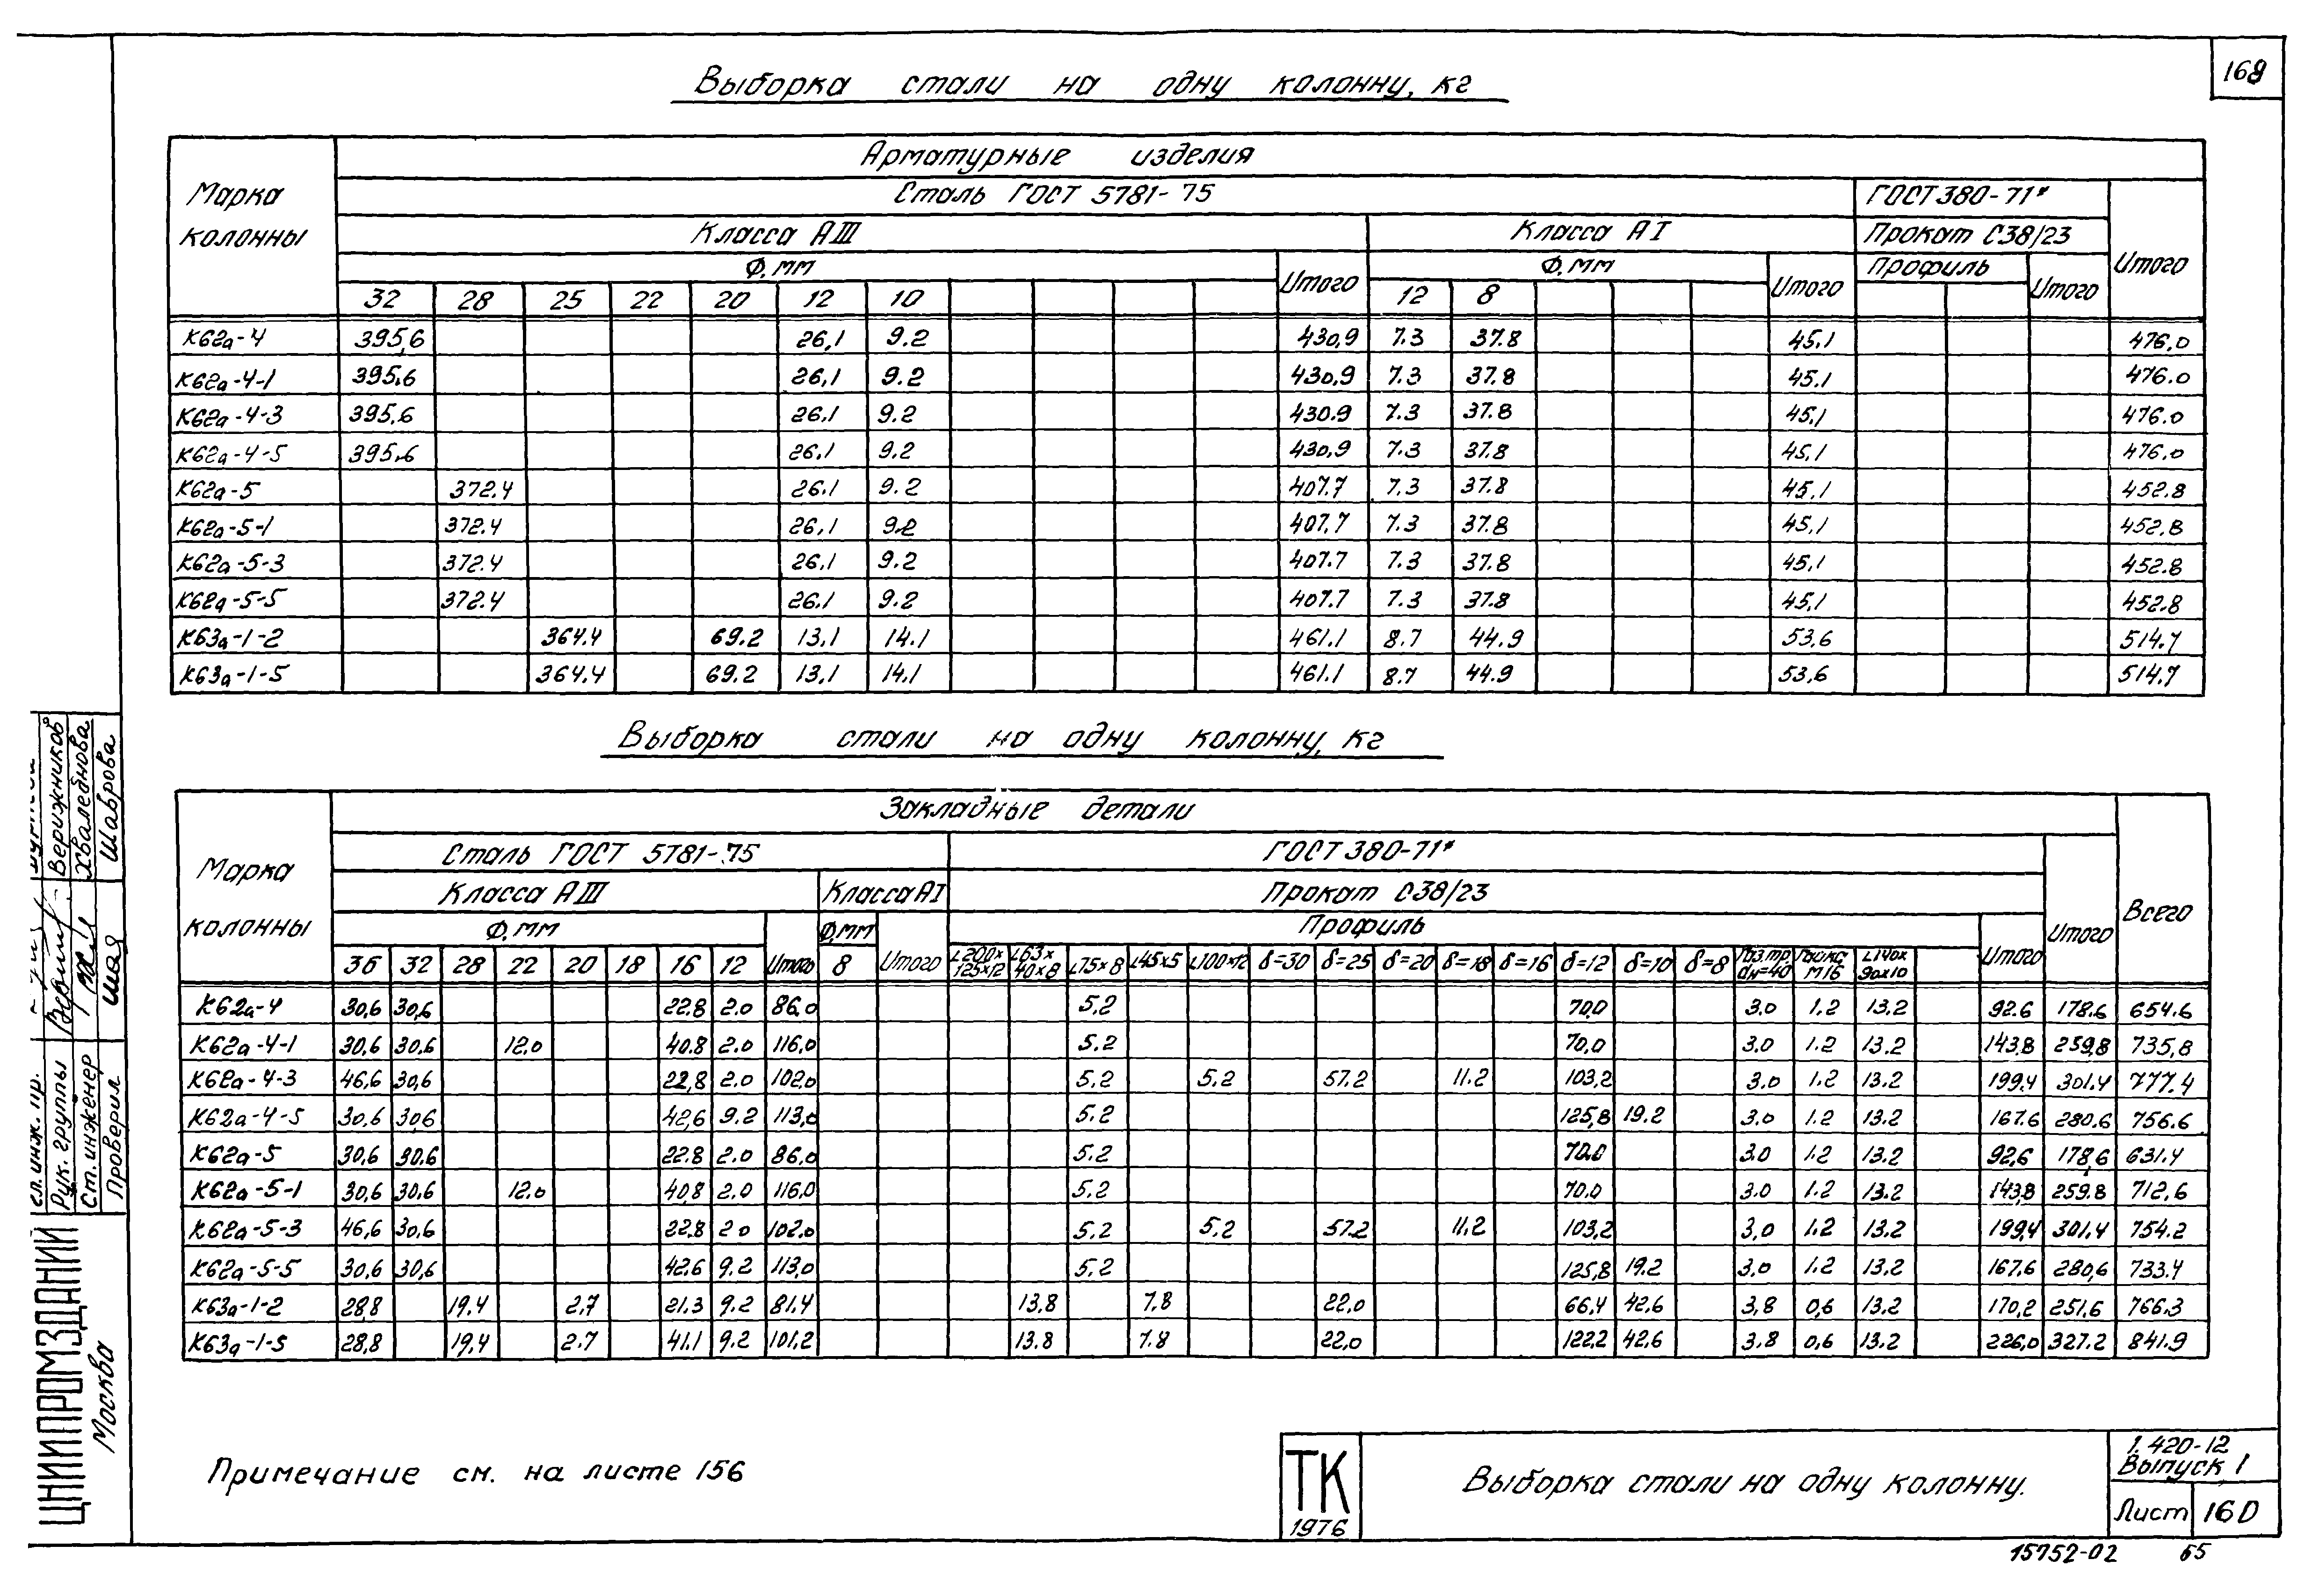 168
Выборка стали на одну колонну, кг
Марка колонны
Арматурные изделия
Сталь ГОСТ 5781-75
ГОСТ 380-71*
Итого
Класса АIII
Класса АI
Прокат С38/23
Ф, мм
Итого
Ф, мм
Итого
Профиль
Итого
32 28 25 22 20 12 10 12 8
К62а-4 395,6 26,1 9.2 430,9 7.3 37.8 45.1 476,0
К62а-4-1 395.6 26,1 9.2 430,9 7.3 37.8 45.1 476.0
К62а-4-3 395,6 26,1 9.2 430.9 7.3 37.8 45,1 476.0
К62а-4-5 395.6 26.1 9.2 430,9 7.3 37.8 45,1 476.0
К62а-5 372.4 26.1 9.2 407.7 7.3 37.8 45,1 452.8
К62а-5-1 372.4 26,1 9.2 407.7 7.3 37.8 45,1 452.8
К62а-5-3 372.4 26,1 9.2 407.7 7.3 37.8 45,1 452.8
К62а-5-5 372.4 26.1 9.2 407.7 7.3 37.8 45,1 452.8
К63а-1-2 364.4 69.2 13,1 14.1 461.1 8.7 44.9 53.6 514.7
К63а-1-5 364.4 69.2 13,1 14.1 461.1 8.7 44.9 53,6 514.7
Выборка стали на одну колонну, кг
Марка колонны
Закладные детали
Всего
Сталь ГОСТ 5781-75
ГОСТ 380-71*
Итого
Класса АIII
Класса АI
Прокат С38/23
Ф, мм
Итого
Ф, мм
Итого
Профиль
Итого
36 32 28 22 20 18 16 12 8 L200×125×12 L63×40×8 L75×8 L45×5 L100×12 δ=30 δ=25 δ=20 δ=18 δ=16 δ=12 δ=10 δ=8 Газ.тр. dн=40 Гайка М16 L140×90×10
К62а-4 30,6 30,6 22.8 2.0 86,0 5.2 70,0 3.0 1.2 13.2 92.6 178.6 654.6
К62а-4-1 30,6 30,6 12.0 40.8 2.0 116,0 5.2 70,0 3.0 1.2 13.2 143,8 259,8 735,8
К62а-4-3 46,6 30,6 22,8 2.0 102,0 5.2 5.2 57.2 11.2 103,2 3.0 1.2 13.2 199,4 301.4 777.4
К62а-4-5 30.6 30,6 42,6 9.2 113,0 5.2 125,8 19.2 3.0 1.2 13.2 167.6 280.6 756.6
К62а-5 30,6 30.6 22.8 2.0 86,0 5.2 70.0 3.0 1.2 13.2 92,6 178,6 631.4
К62а-5-1 30,6 30,6 12.0 40,8 2.0 116,0 5.2 70.0 3.0 1.2 13.2 143,8 259.8 712,6
К62а-5-3 46,6 30,6 22.8 2.0 102.0 5.2 5.2 57.2 11.2 103,2 3,0 1.2 13.2 199,4 301.4 754.2
К62а-5-5 30,6 30,6 42.6 9.2 113,0 5.2 125,8 19.2 3,0 1.2 13.2 167.6 280,6 733.4
К63а-1-2 28,8 19.4 2.7 21.3 9.2 81.4 13.8 7.8 22.0 66,4 42,6 3,8 0,6 13.2 170,2 251.6 766.3
К63а-1-5 28,8 19,4 2.7 41.1 9.2 101.2 13.8 7.8 22,0 122,2 42.6 3.8 0,6 13.2 226,0 327.2 841.9
Примечание см. на листе 156
ТК
1976
Выборка стали на одну колонну.
1.420-12
Выпуск 1
Лист 160
15752-02 65
Гл. инж. пр.
Рук. группы Верижников
Ст. инженер Хваледнова
Проверил Шаврова
ЦНИИПРОМЗДАНИЙ
Москва